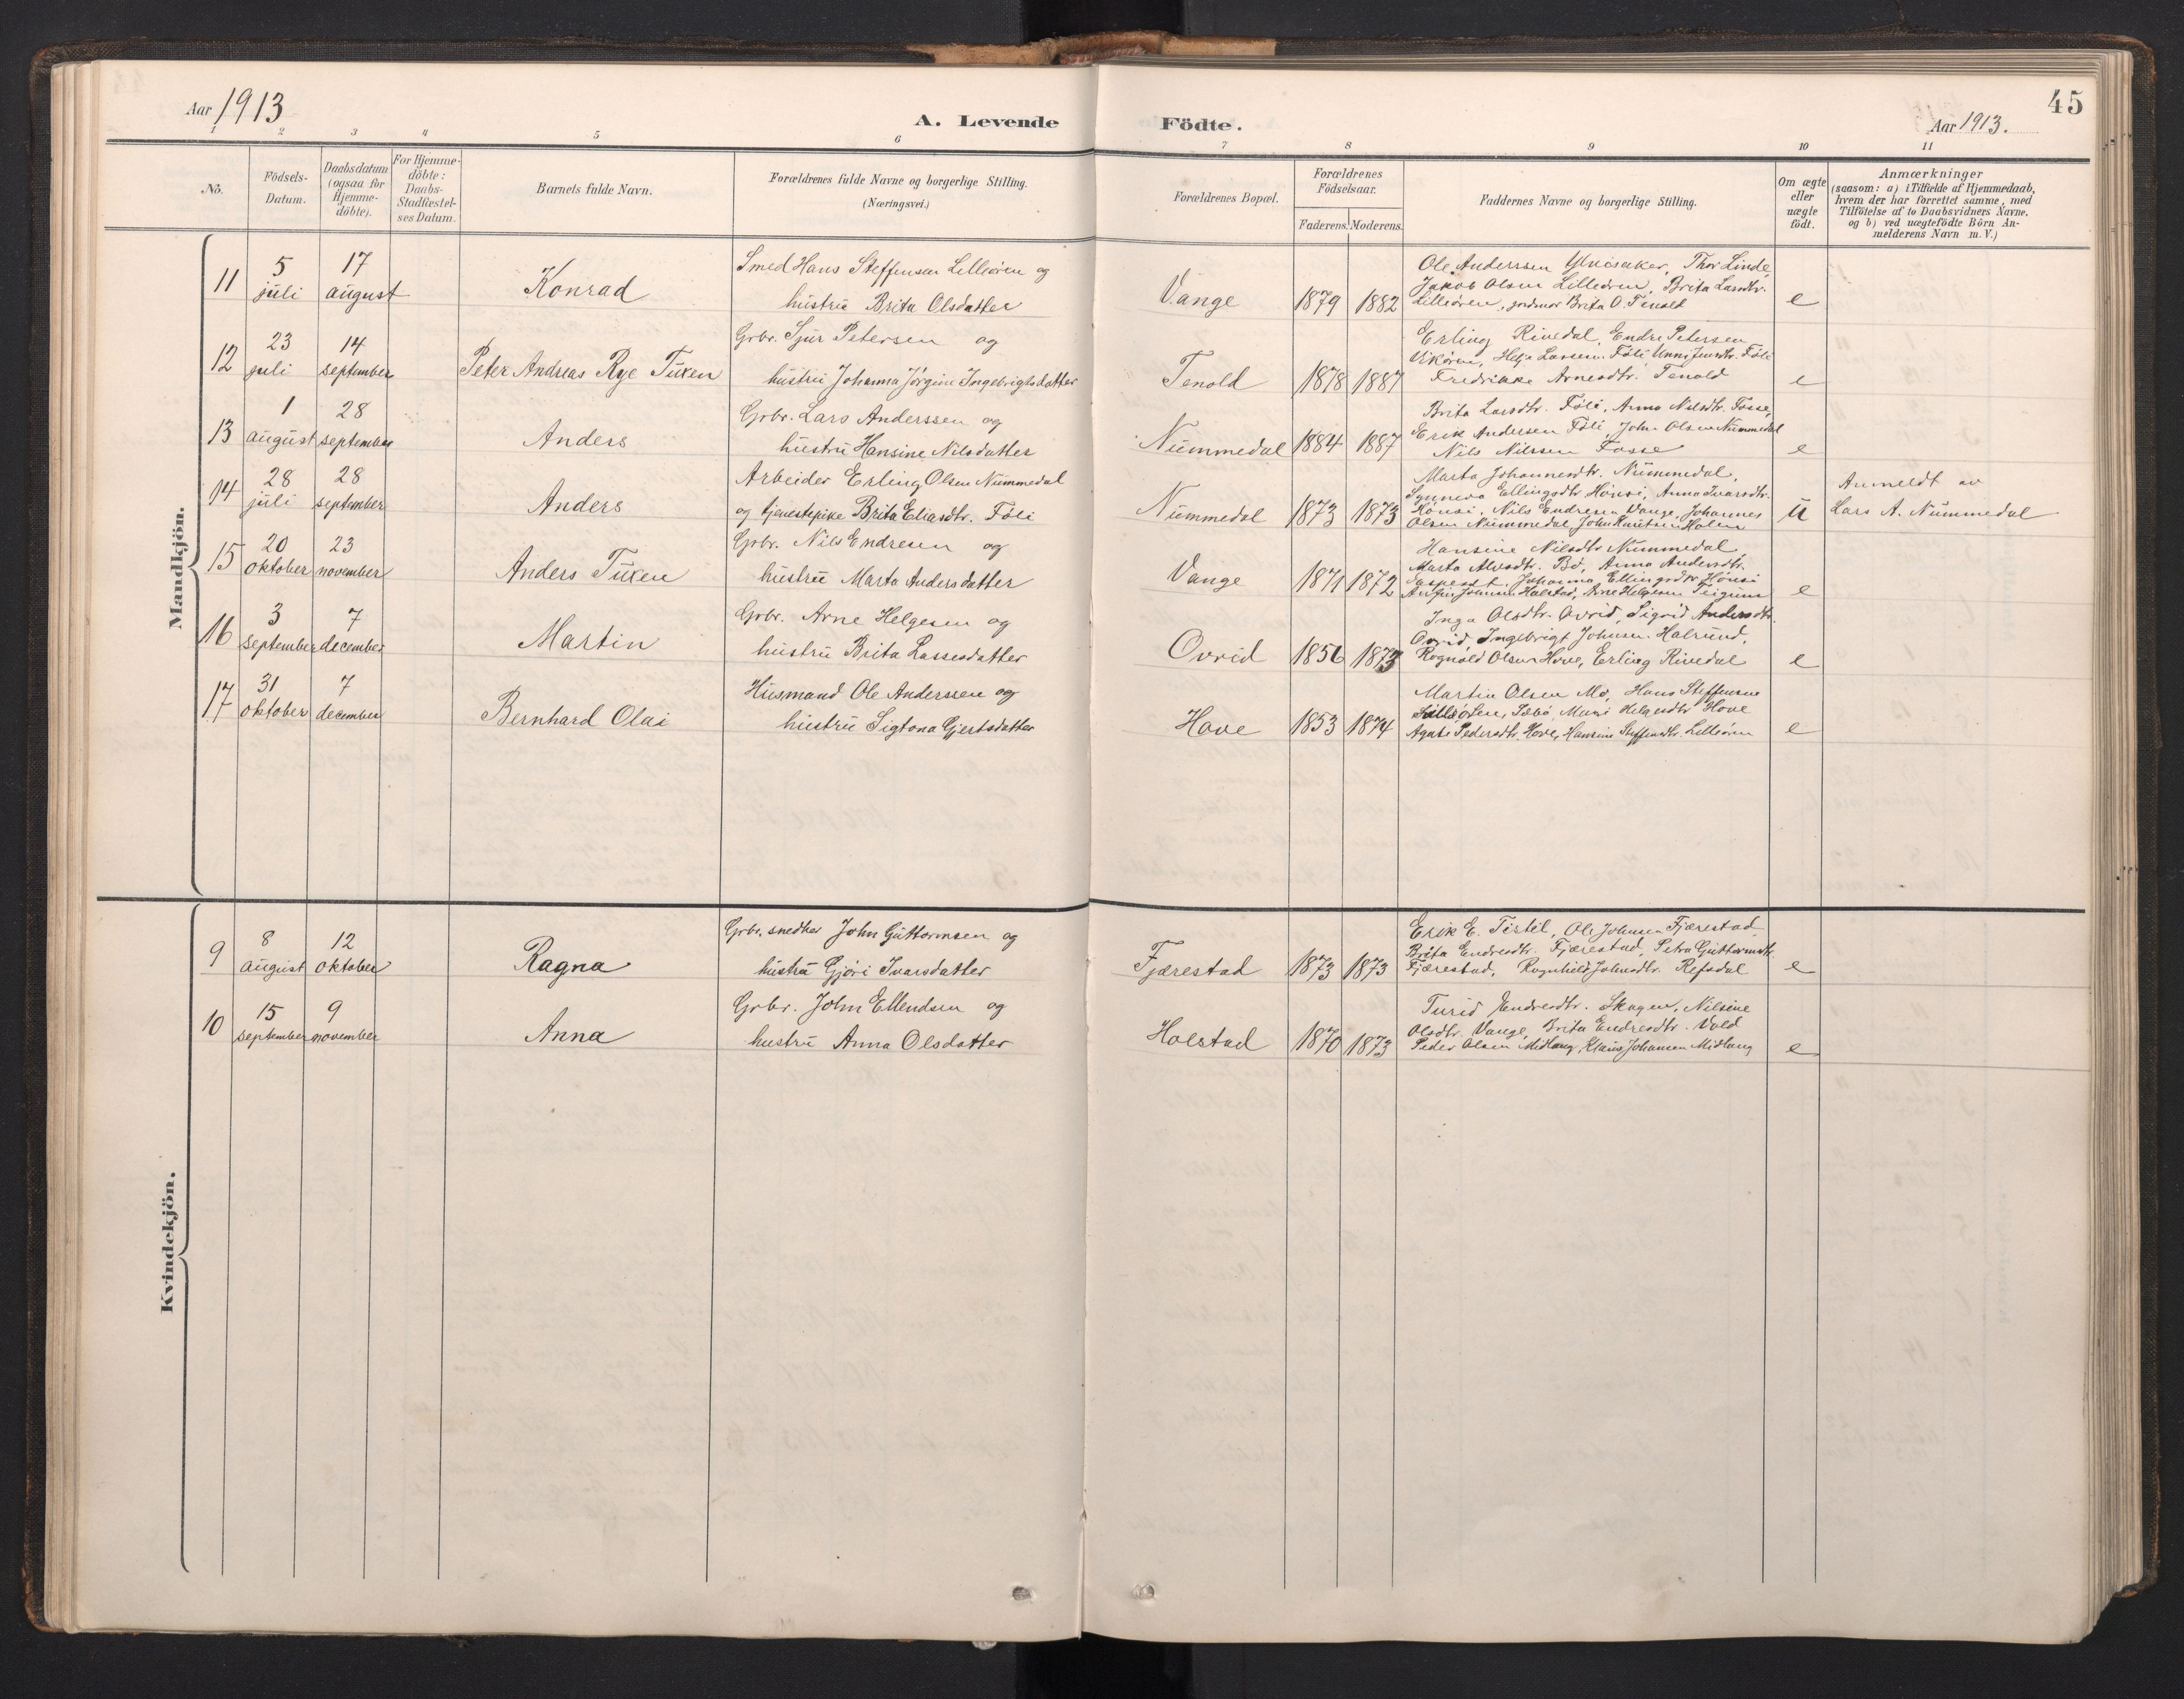 45
Aar 1913
A. Levende Födte.
Aar 1913.
1 2 3 4 5 6 7 8 9 10 11
No.
Födsels-
Datum.
Daabsdatum
(ogsaa for
Hjemme-
döbte).
For Hjemme-
döbte:
Daabs-
Stadfæstel-
ses Datum.
Barnets fulde Navn.
Forældrenes fulde Navne og borgerlige Stilling.
(Næringsvei.)
Forældrenes Bopæl.
Forældrenes
Födselsaar.
Faderens. Moderens.
Faddernes Navne og borgerlige Stilling.
Om ægte
eller
uægte
födt.
Anmærkninger
(saasom: a) i Tilfælde af Hjemmedaab,
hvem der har forrettet samme, med
Tilföielse af to Daabsvidners Navne.
og b) ved uægtefödte Börn An-
melderens Navn m. V.)
Mandkjön.
11
5
juli
17
august
Konrad
Smed Hans Steffensen Lilleören og
hustru Brita Olsdatter
Vange
1879 1882
Ole Anderssen Thor Linde,
Jakob Olsen Lilleören, Brita Larsdtr.
Lilleören, jordmor Brita O. Tenold
e
12
23
juli
14
september
Peter Andreas Rye Tuxen
Grbr. Sjur Petersen og
hustru Johanna Jörgine Ingebrigtsdatter
Tenold
1878 1887
Erling Rinedal, Endre Petersen
Vikören, Helje Larsen Föli Unni Jensdtr. Föli
Fredrikke Arnesdtr. Tenold
e
13
1
august
28
september
Anders
Grbr. Lars Anderssen og
hustru Hansine Nilsdatter
Nummedal
1884 1887
Brita Larsdtr. Föli, Anna Nilsdtr. Fosse,
Erik Andersen Föli, John Olsen Nummedal
Nils Nilssen Fosse
e
14
28
juli
28
september
Anders
Arbeider Erling Olsen Nummedal
og tjenestepike Brita Eliasdtr. Föli
Nummedal
1873 1873
Marta Johannesdtr. Nummedal,
Synneva Ellingsdtr Hönsi, Anna Ivarsdtr.
Hönsi, Nils Endresen Vange, Johannes
Olsen Nummedal, John Knutsen Holen
u
Anmeldt av
Lars A. Nummedal
15
20
oktober
23
november
Anders Tuxen
Grbr. Nils Endresen og
hustru Marta Andersdatter
Vange
1871 1872
Hansine Nilsdtr Nummedal,
Marta Alvsdtr. Bö, Anna Andersdtr.
Johanna Ellingsdtr Hönsi
Johnsen Halstad, Arne Helgesen Teigum
e
16
3
september
7
december
Martin
Grbr. Arne Helgesen og
hustru Brita Lassesdatter
Ovrid
1856 1873
Inga Olsdtr. Ovrid, Sigrid Andersdtr.
Ovrid, Ingebrigt Johnsen Halsund,
Rognald Olsen Hove, Erling Rinedal
e
17
31
oktober
7
december
Bernhard Olai
Husmand Ole Anderssen og
hustru Sigtona Gjertsdatter
Hove
1853 1874
Martin Olsen Mo, Hans Steffensen
Lilleören, Helgesdtr Hove
Agate Pedersdtr. Hove, Hansine Steffensdtr. Lilleören
e
Kvindekjön.
9
8
august
12
oktober
Ragna
Grbr. snedker John Guttormsen og
hustru Gjöri Ivarsdatter
Fjærestad
1873 1873
Erik E. Tistel, Ole Johnsen Fjærestad,
Brita Endresdtr. Fjærestad, Petra Guttormsdtr.
Fjærestad, Ragnhild Johnsdtr. Refsdal
e
10
15
september
9
november
Anna
Grbr. John Ellendsen og
hustru Anna Olsdatter
Holstad
1870 1873
Turid Endresdtr. Skagen, Nilsine
Olsdtr. Vange, Brita Endresdtr. Vold
Peder Olsen Midlang, Klaus Johansen Midlang
e